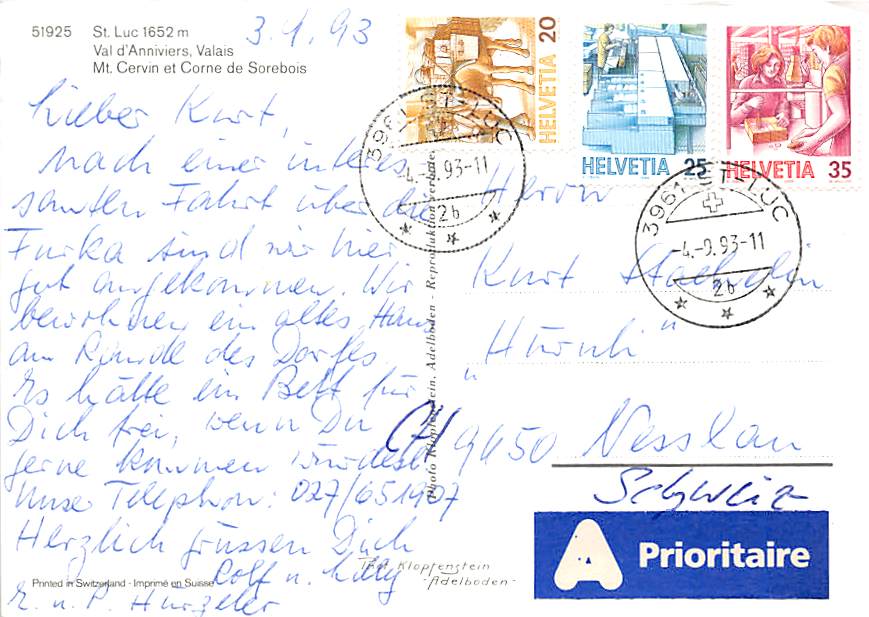 51925 St. Luc 1652 m
Val d'Anniviers, Valais
Mt. Cervin et Corne de Sorebois
3.9.93
Lieber Kurt,
nach einer interes
santen Fahrt über die
Furka sind wir hier
gut angekommen. Wir
bewohnen ein altes Haus
am Rande des Dorfes.
Es hätte ein Bett für
Dich frei, wenn Du
gerne kommen würdest
Unse Telephon: 027/651907
Herzlich grüssen Dich
Rolf u. Milly
R. u. P. Hürzeler
Printed in Switzerland - Imprimé en Suisse
Photo Klopfenstein, Adelboden - Reproduktion verboten
Phot. Klopfenstein
- Adelboden -
HELVETIA 20
HELVETIA 25
HELVETIA 35
3961 ST-LUC
-4.-9.93-11
2b
3961 ST-LUC
-4.-9.93-11
2b
Herrn
Kurt Staehelin
"Hürnli"
CH 9650 Nesslau
Schweiz
A Prioritaire